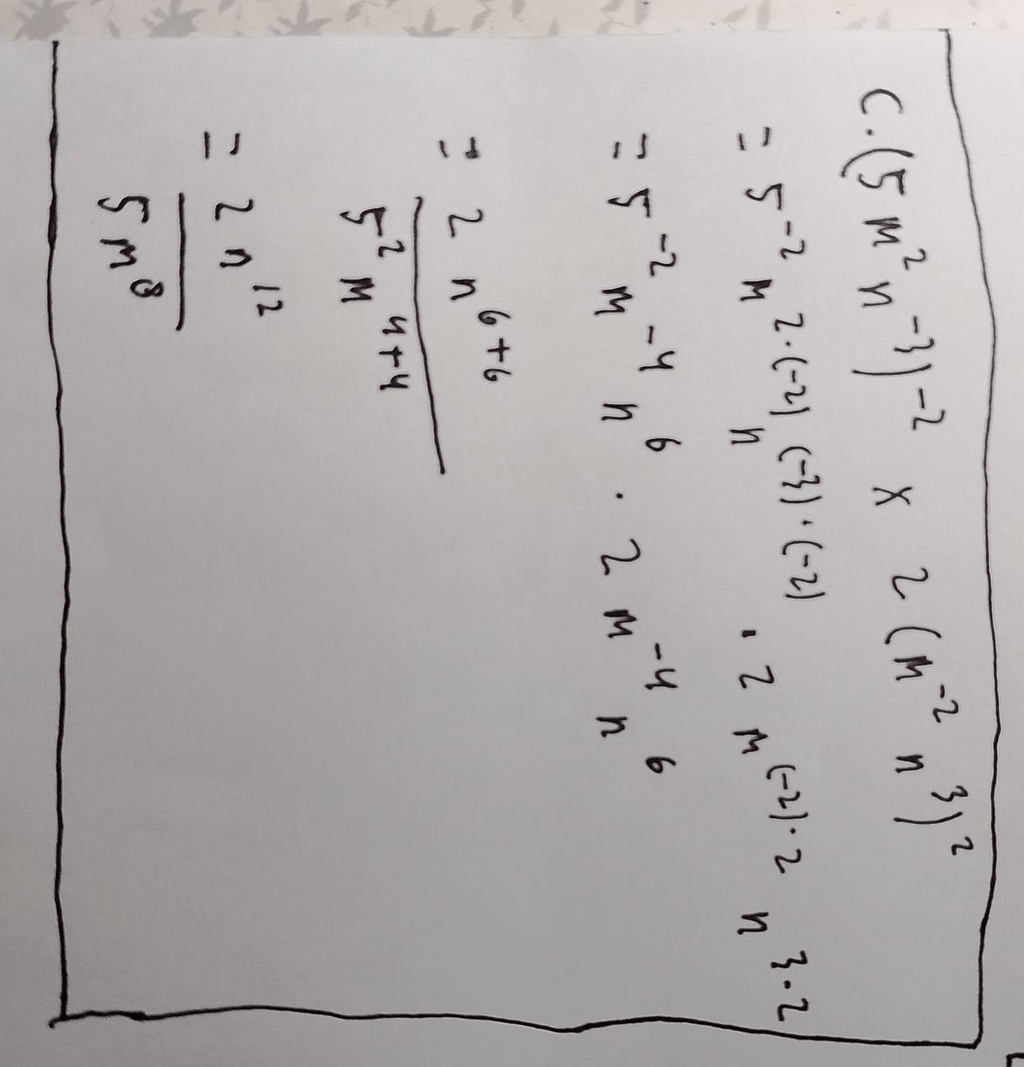 C. (5 m² n⁻³)⁻² × 2 (m⁻² n³)²
= 5⁻² m²·⁽⁻²⁾ n⁽⁻³⁾·⁽⁻²⁾ · 2 m⁽⁻²⁾·² n³·²
= 5⁻² m⁻⁴ n⁶ · 2 m⁻⁴ n⁶
= 2 n⁶⁺⁶
5² m⁴⁺⁴
= 2 n¹²
5 m⁸